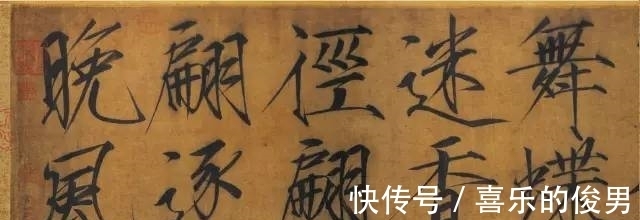 舞蝶
迷香
徑翩
翩逐
晚風
快传号 / 喜乐的俊男